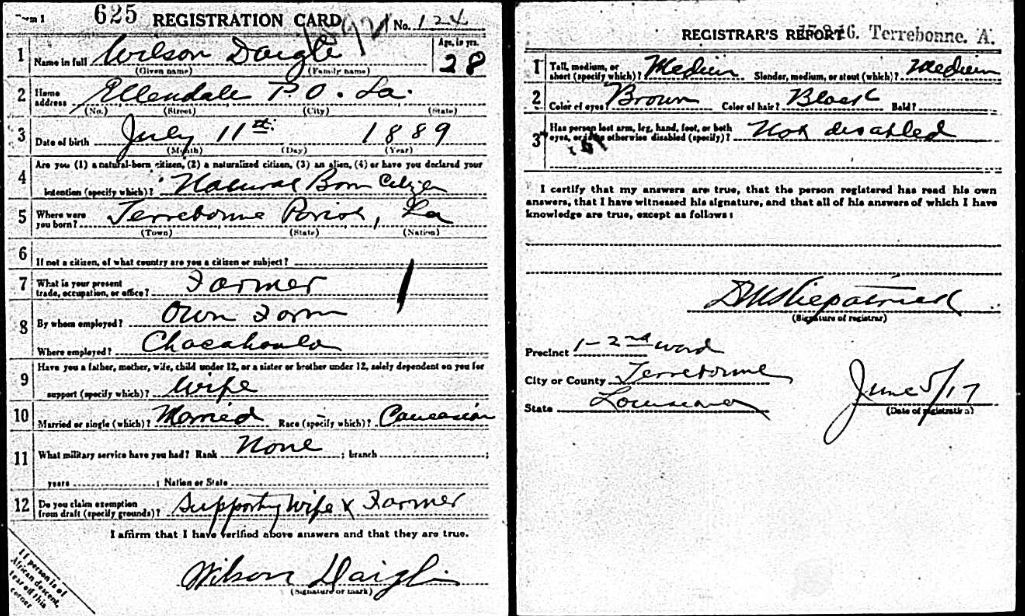 Form 1 625 REGISTRATION CARD No. 124
1 Name in full Wilson Daigle Age, in yrs. 28
(Given name) (Family name)
2 Home address Ellendale P.O. La.
(No.) (Street) (City) (State)
3 Date of birth July 11th 1889
(Month) (Day) (Year)
4 Are you (1) a natural-born citizen, (2) a naturalized citizen, (3) an alien, (4) or have you declared your
intention (specify which)? Natural Born Citizen
5 Where were you born? Terrebonne Parish, La
(Town) (State) (Nation)
6 If not a citizen, of what country are you a citizen or subject?
7 What is your present trade, occupation, or office? Farmer
8 By whom employed? Own Farm
Where employed? Chacahoula
9 Have you a father, mother, wife, child under 12, or a sister or brother under 12, solely dependent on you for
support (specify which)? Wife
10 Married or single (which)? Married Race (specify which)? Caucasian
11 What military service have you had? Rank None ; branch
years ; Nation or State
12 Do you claim exemption from draft (specify grounds)? Supporting Wife & Farmer
I affirm that I have verified above answers and that they are true.
Wilson Daigle
(Signature or mark)
If person is of
African descent,
tear off this
corner
REGISTRAR'S REPORT 6. Terrebonne. A.
1 Tall, medium, or short (specify which)? Medium Slender, medium, or stout (which)? Medium
2 Color of eyes? Brown Color of hair? Black Bald?
3 Has person lost arm, leg, hand, foot, or both eyes, or is he otherwise disabled (specify)? Not disabled
I certify that my answers are true, that the person registered has read his own
answers, that I have witnessed his signature, and that all of his answers of which I have
knowledge are true, except as follows:
(Signature of registrar)
Precinct 1-2nd Ward
City or County Terrebonne
State Louisiana
June 5/17
(Date of registration)